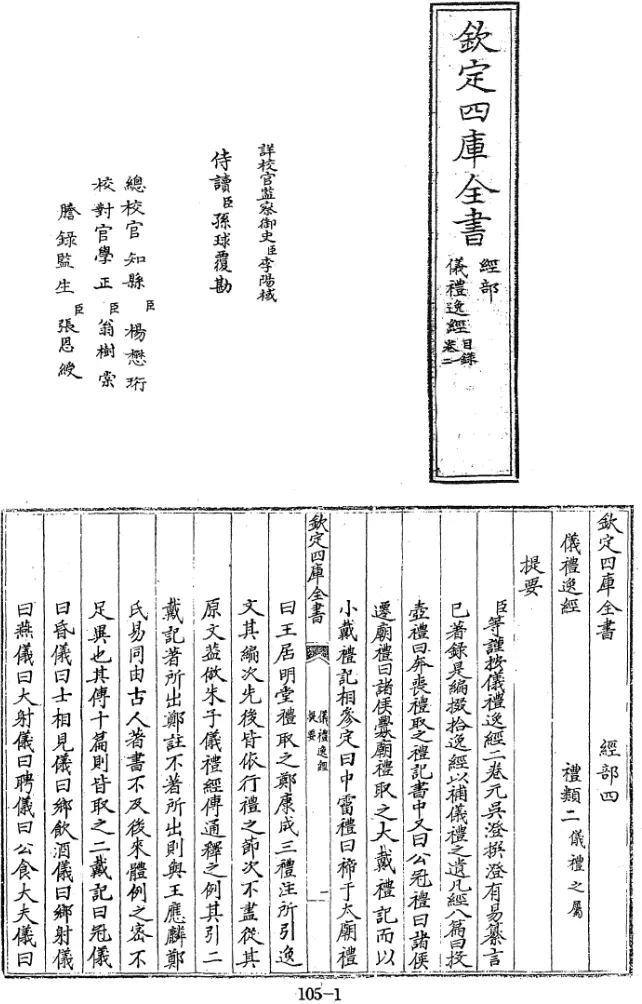 欽定四庫全書
經部
儀禮逸經
目錄
卷二
詳校官監察御史臣李陽棫
侍讀臣孫球覆勘
總校官知縣臣楊懋珩
校對官學正臣翁樹棠
謄錄監生臣張恩綬
欽定四庫全書 經部四
儀禮逸經 禮類二儀禮之屬
提要
臣等謹按儀禮逸經二卷元吳澄撰澄有易纂言
已著錄是編掇拾逸經以補儀禮之遺凡經八篇曰投
壺禮曰奔喪禮取之禮記書中又曰公冠禮曰諸侯
遷廟禮曰諸侯釁廟禮取之大戴禮記而以
小戴禮記相參定曰中霤禮曰禘于太廟禮
欽定四庫全書
儀禮逸經
提要
一
曰王居明堂禮取之鄭康成三禮注所引逸
文其編次先後皆依行禮之節次不盡從其
原文蓋倣朱子儀禮經傳通釋之例其引二
戴記著所出鄭註不著所出則與王應麟鄭
氏易同由古人著書不及後來體例之密不
足異也其傳十篇則皆取之二戴記曰冠儀
曰昏儀曰士相見儀曰鄉飲酒儀曰鄉射儀
曰燕儀曰大射儀曰聘儀曰公食大夫儀曰
105-1